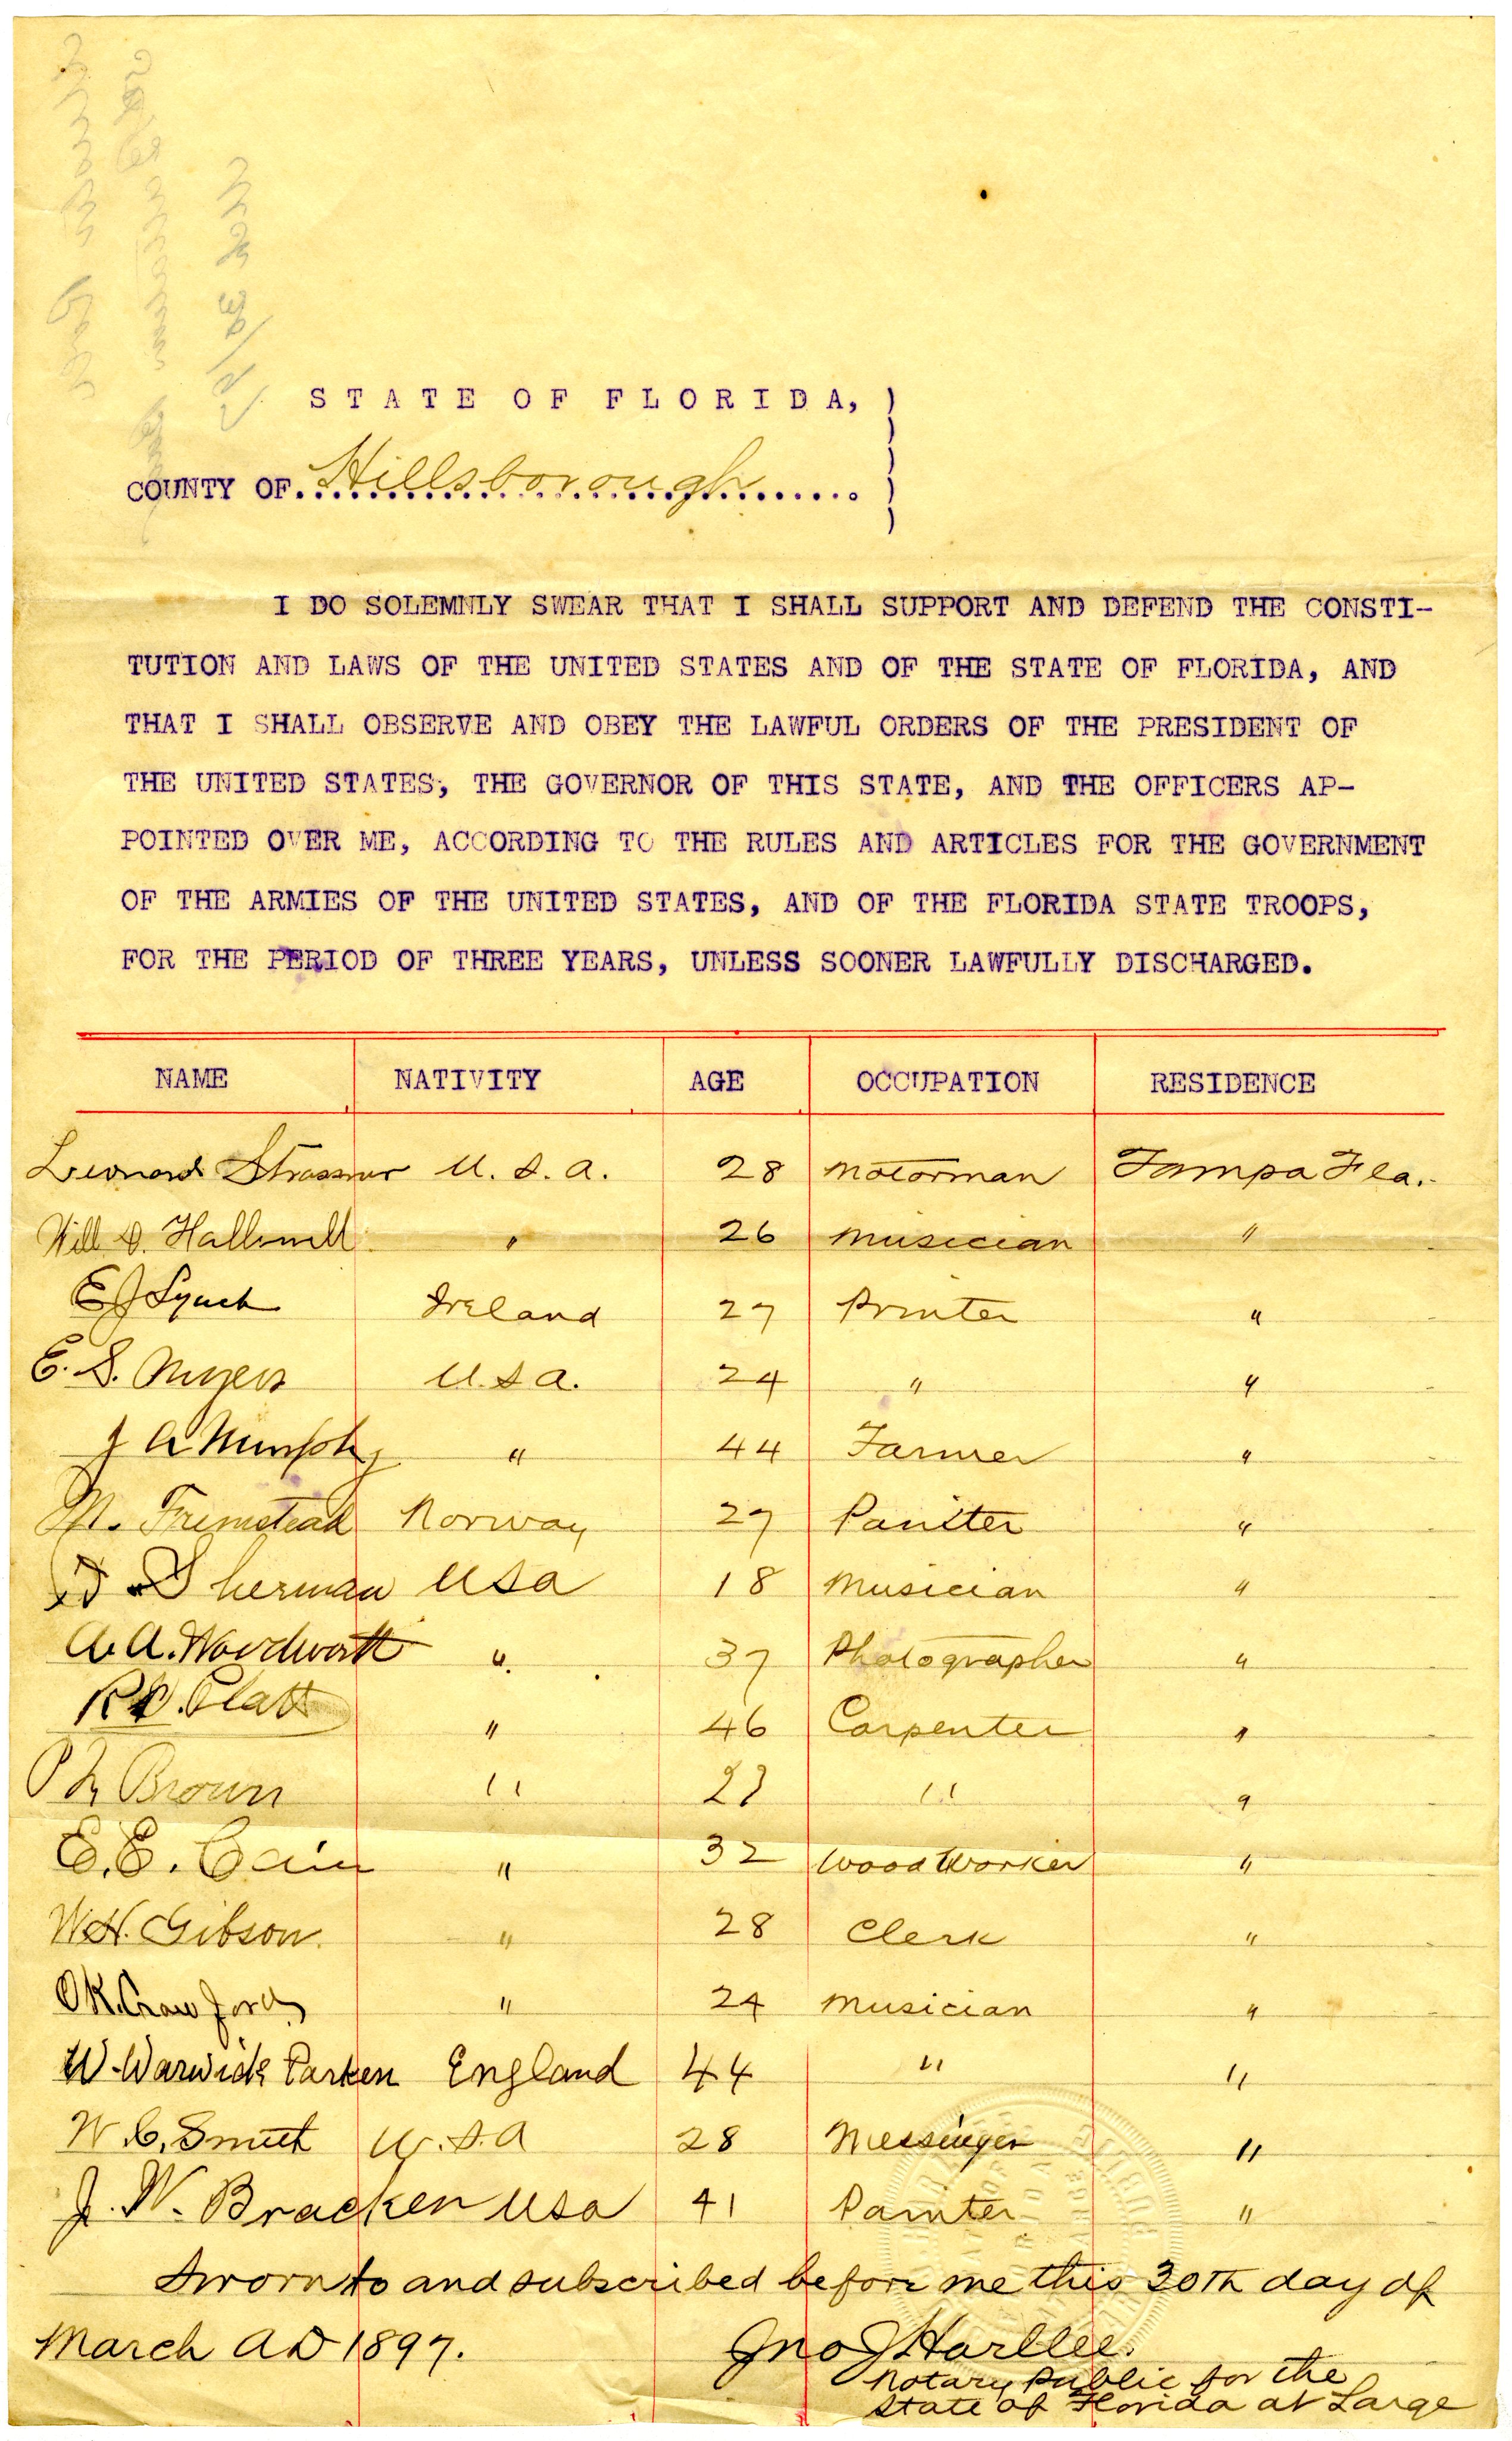 STATE OF FLORIDA, )
COUNTY OF. Hillsborough )
I DO SOLEMNLY SWEAR THAT I SHALL SUPPORT AND DEFEND THE CONSTI-
TUTION AND LAWS OF THE UNITED STATES AND OF THE STATE OF FLORIDA, AND
THAT I SHALL OBSERVE AND OBEY THE LAWFUL ORDERS OF THE PRESIDENT OF
THE UNITED STATES, THE GOVERNOR OF THIS STATE, AND THE OFFICERS AP-
POINTED OVER ME, ACCORDING TO THE RULES AND ARTICLES FOR THE GOVERNMENT
OF THE ARMIES OF THE UNITED STATES, AND OF THE FLORIDA STATE TROOPS,
FOR THE PERIOD OF THREE YEARS, UNLESS SOONER LAWFULLY DISCHARGED.
NAME NATIVITY AGE OCCUPATION RESIDENCE
Leonard Strassner U.S.A. 28 Motorman Tampa Fla.
Will D. Halliwell " 26 Musician "
E J Lynch Ireland 27 Printer "
E. S. Myers U.S.A. 24 " "
J A Murphy " 44 Farmer "
M. Fremstead Norway 27 Painter "
Sherman USA 18 Musician "
A. A. Woodworth " 37 Photographer "
R D. Platt " 46 Carpenter "
Brown " 27 " "
E. E. Cain " 32 Wood Worker "
W.H. Gibson " 28 Clerk "
O K. Crawford " 24 Musician "
W. Warwick Parken England 44 " "
W. C. Smith U.S.A 28 Messinger "
J. W. Bracken USA 41 Painter "
Sworn to and subscribed before me this 30th day of
March AD 1897. Jno J Harllee.
Notary Public for the
State of Florida at Large